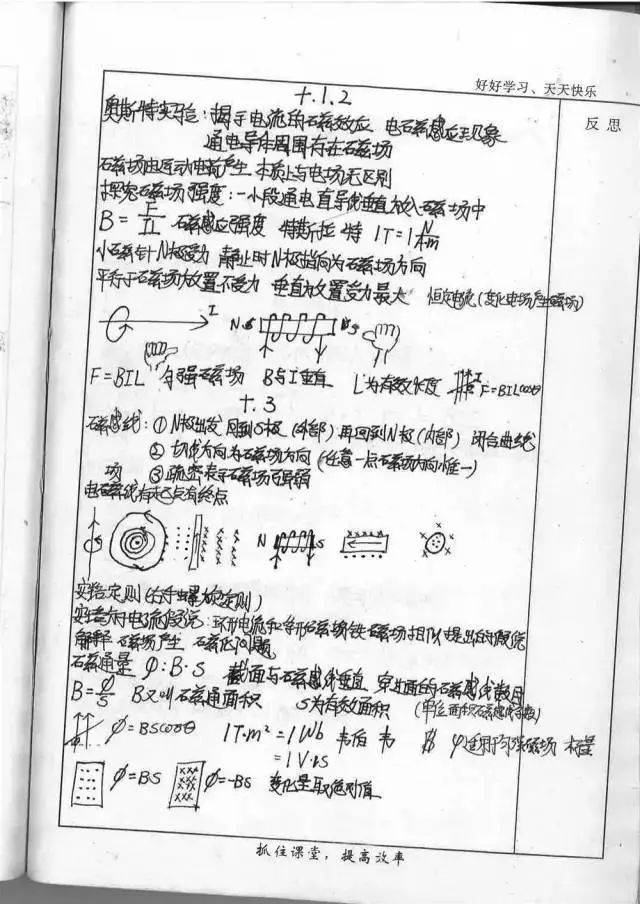 好好学习、天天快乐
反思
十.1.2
奥斯特实验：揭示电流的磁效应 电磁感应现象
通电导体周围存在磁场
磁场由运动电荷产生 本质上与电场无区别
探究磁场强度：一小段通电直导线垂直放入磁场中
B = F/IL 磁感应强度 特斯拉 特 1T=1N/Am
小磁针N极受力 静止时N极指向为磁场方向
平行于磁场放置不受力 垂直放置受力最大 恒定电流(变化电场产生磁场)
I
N S
F=BIL 匀强磁场 B与I垂直 L为有效长度 I F=BILcosθ
十.3
磁感线：① N极出发 回到S极 (外部) 再回到N极 (内部) 闭合曲线
② 切线方向为磁场方向 (任意一点磁场方向唯一)
③ 疏密表示磁场强弱
电场线有起点有终点
N S
安培定则 (右手螺旋定则)
安培分子电流假说：环形电流和条形磁铁磁场相似提出的假说
解释 磁场产生 磁化问题
磁通量 φ：B·S 截面与磁感线垂直 穿过面的磁感线数目
B=φ/S B又叫磁通面积 S为有效面积 (单位面积磁感线条数)
φ=BScosθ 1T·m² = 1Wb 韦伯 韦 φ适用匀强磁场 标量
= 1V·s
φ=BS φ=-BS 变化量取绝对值
抓住课堂，提高效率